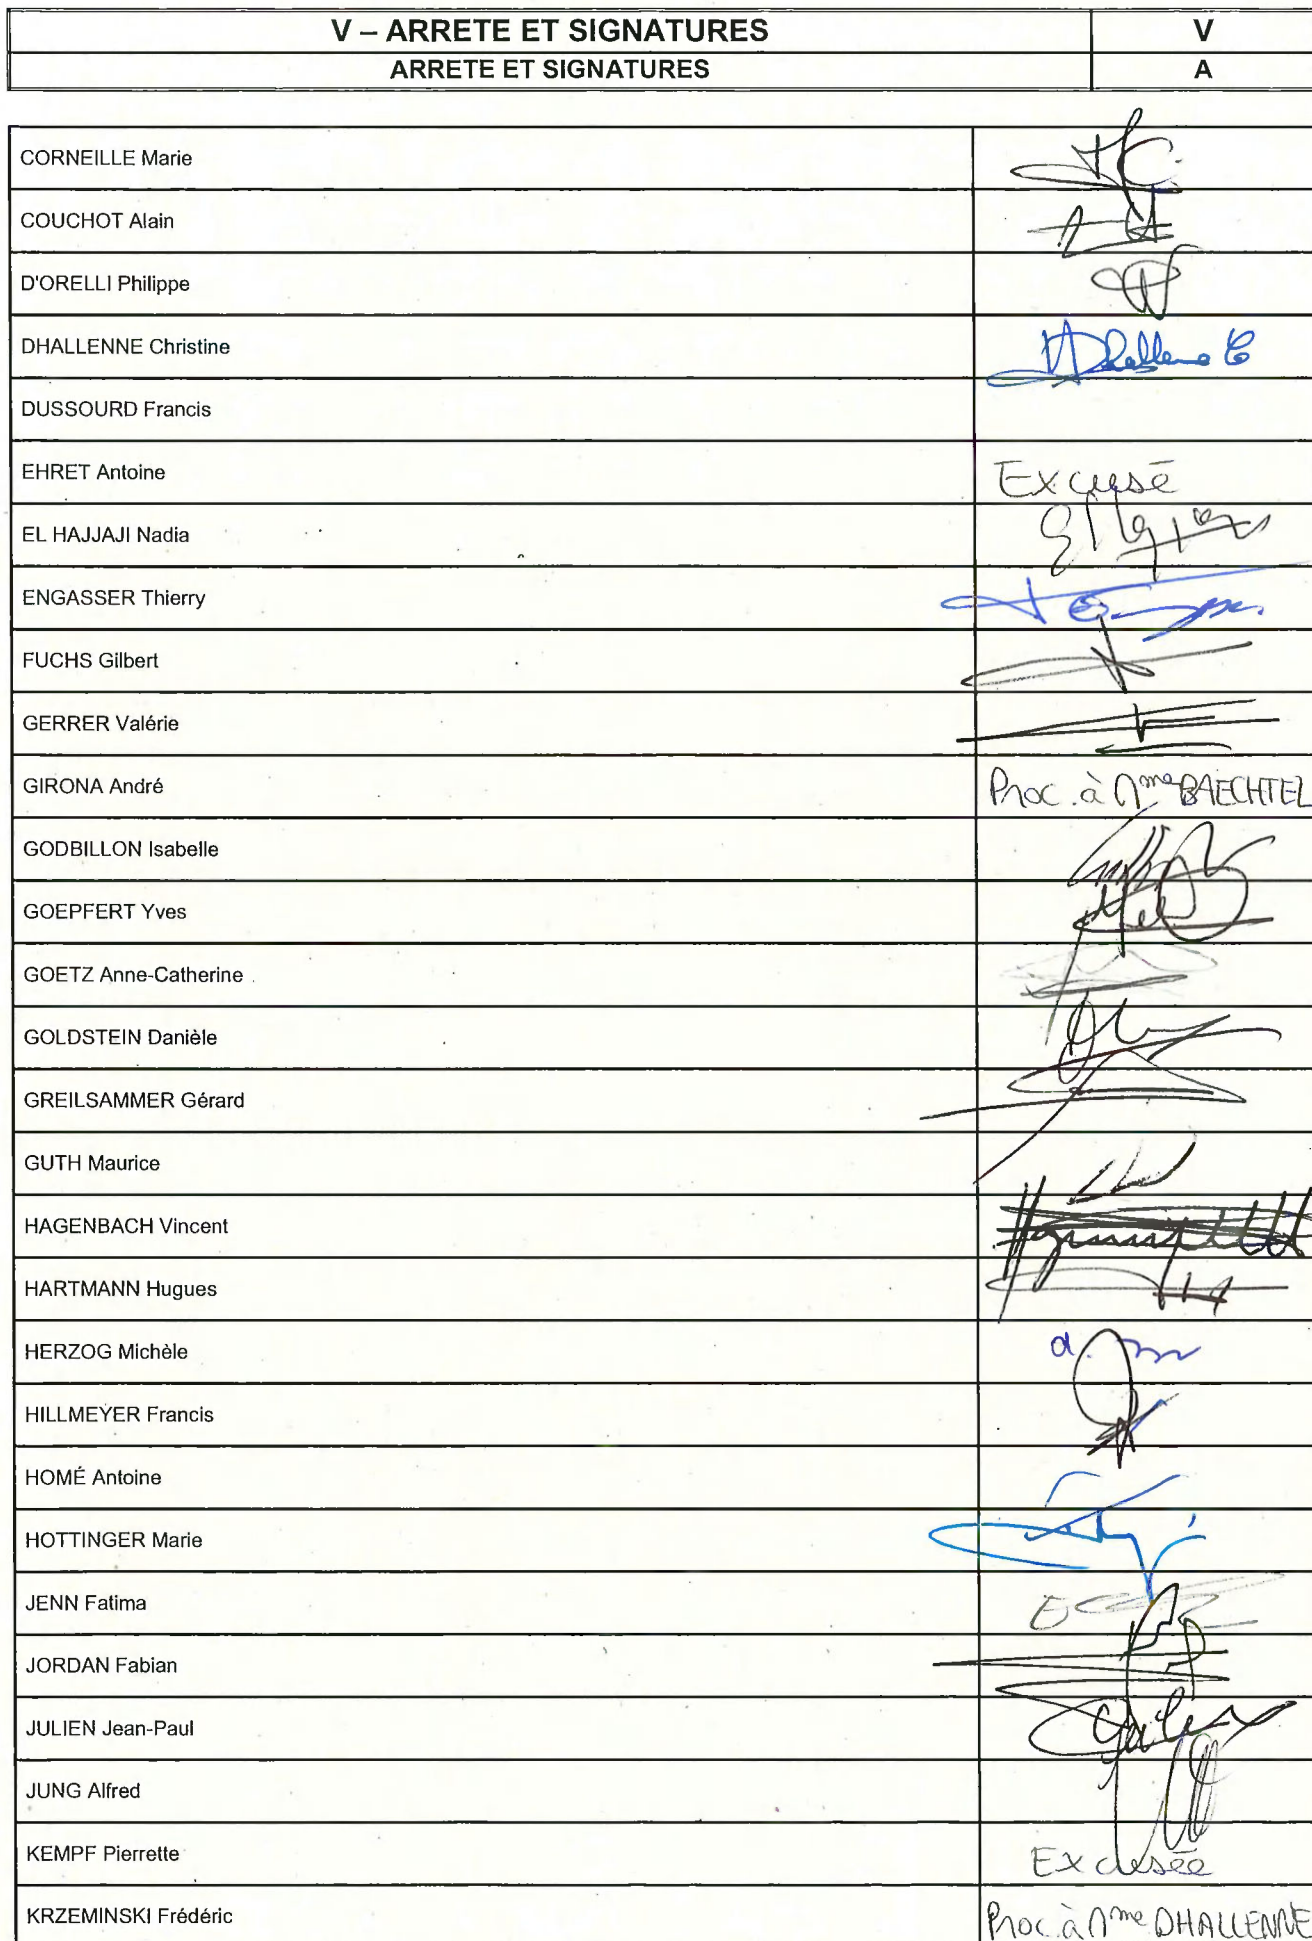 V – ARRETE ET SIGNATURES V
ARRETE ET SIGNATURES A
CORNEILLE Marie
COUCHOT Alain
D'ORELLI Philippe
DHALLENNE Christine Dhallenne C
DUSSOURD Francis
EHRET Antoine Excusé
EL HAJJAJI Nadia
ENGASSER Thierry
FUCHS Gilbert
GERRER Valérie
GIRONA André Proc. à Mme BAECHTEL
GODBILLON Isabelle
GOEPFERT Yves
GOETZ Anne-Catherine
GOLDSTEIN Danièle
GREILSAMMER Gérard
GUTH Maurice
HAGENBACH Vincent
HARTMANN Hugues
HERZOG Michèle
HILLMEYER Francis
HOMÉ Antoine
HOTTINGER Marie
JENN Fatima
JORDAN Fabian
JULIEN Jean-Paul
JUNG Alfred
KEMPF Pierrette Excusée
KRZEMINSKI Frédéric Proc à Mme DHALLENNE